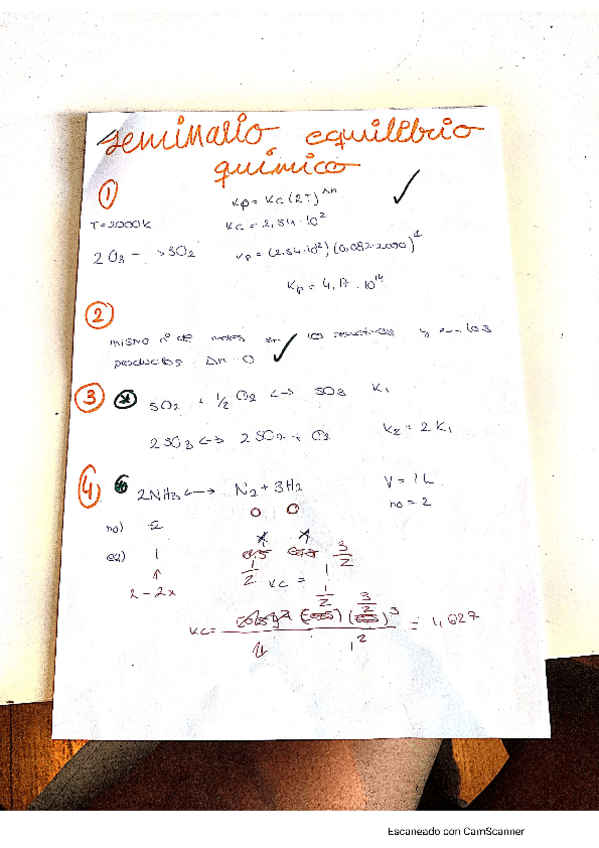 seminario equilibrio
químico
①
Kp = Kc (RT)^Δn ✓
T = 2000K
Kc = 2,54·10²
2O3 -> 3O2
Kp = (2,54·10²)·(0,082·2000)^1
Kp = 4,17·10^14
②
mismo nº de moles en los reactivos y en los
productos Δn = 0 ✓
③ * SO2 + 1/2 O2 <-> SO3 K1
2SO3 <-> 2SO2 + O2 K2 = 2K1
④ * 2NH3 <-> N2 + 3H2 V = 1L
0 0 no = 2
no) 2
eq) 1 1/2 3/2
2 - 2x
Kc =
Kc = 1/2 (3/2)³ / 1² = 1,627
Escaneado con CamScanner